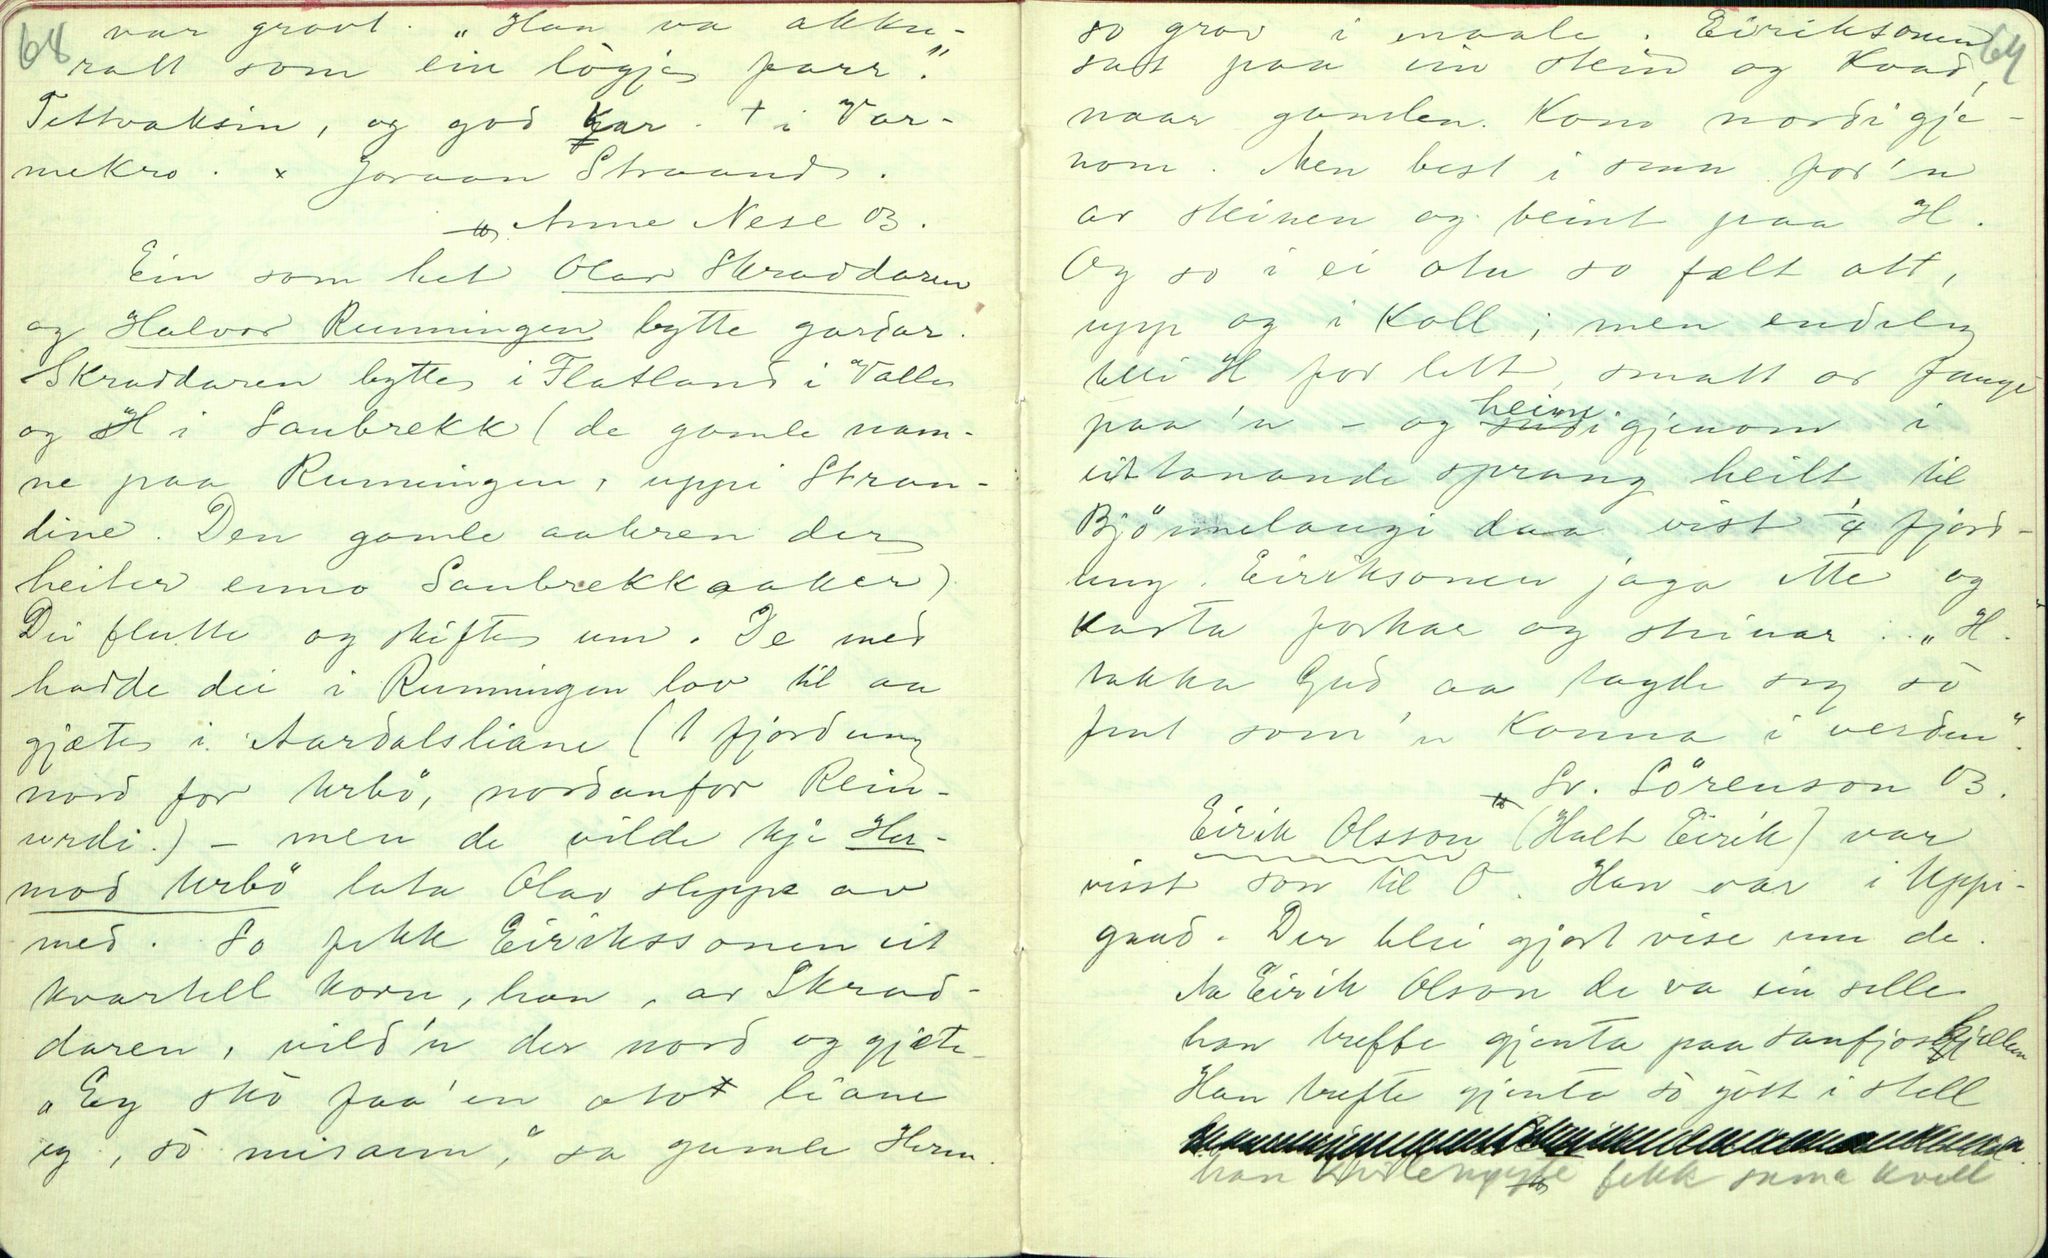 68
var grovt. „Han va akku-
ratt som ein lögje parr“.
Tettvaksin, og god kar. + i Var-
mekro. x Joraan Straand.
Anne Nese 03.
Ein som het Olav Skraddaren
og Halvor Runningen bytte gardar.
Skraddaren bytte i Flatland i Valle
og H i Sanbrekk (de gamle nam-
ne paa Runningen, uppi Stran-
dine. Den gamle aakren der
heiter enno Sanbrekkaaker)
Dei flutte og skifte um. De med
hadde dei i Runningen lov til aa
gjæte i Aardalsliane (1 fjordung
nord for Urbö, nordanfor Rein-
urdi.) – men de vilde kje Her-
mod Urbö lata Olav sleppe av
med. So fekk Eirikssonen eit
kvartell korn, han, av Skrad-
daren, vild'n der nord og gjæte.
„Eg skö faa'en otot liane
eg, sö misann,“ sa gamle Herm.
64
so grov i maale. Eiriksonen
sat paa ein stein og kvad,
naar gamlen kom nordigje-
nom. Men best i senn for'n
av steinen og beint paa H.
Og so i ei otu so fælt att,
upp og i koll; men endeleg
blei H for lett, smatt or fangi
paa'n – og heimigjenom i
eit tanande sprang heilt til
Bjönnelaugi daa vist 1/4 fjord-
ung. Eiriksonen jaga ette og
kasta forkar og steinar. „H.
takka Gud aa tagde seg sö
fint som'n konna i verden“.
Sv. Sörenson 03.
Eirik Olsson (Halt Eirik) var
visst son til O. Han var i Uppi-
gard. Der blei gjort vise um de.
Aa Eirik Olson de va ein selle
han treffte gjenta paa sanfjosfjellen
Han trefte gjenta sö gött i stell
han fekk sama kvell